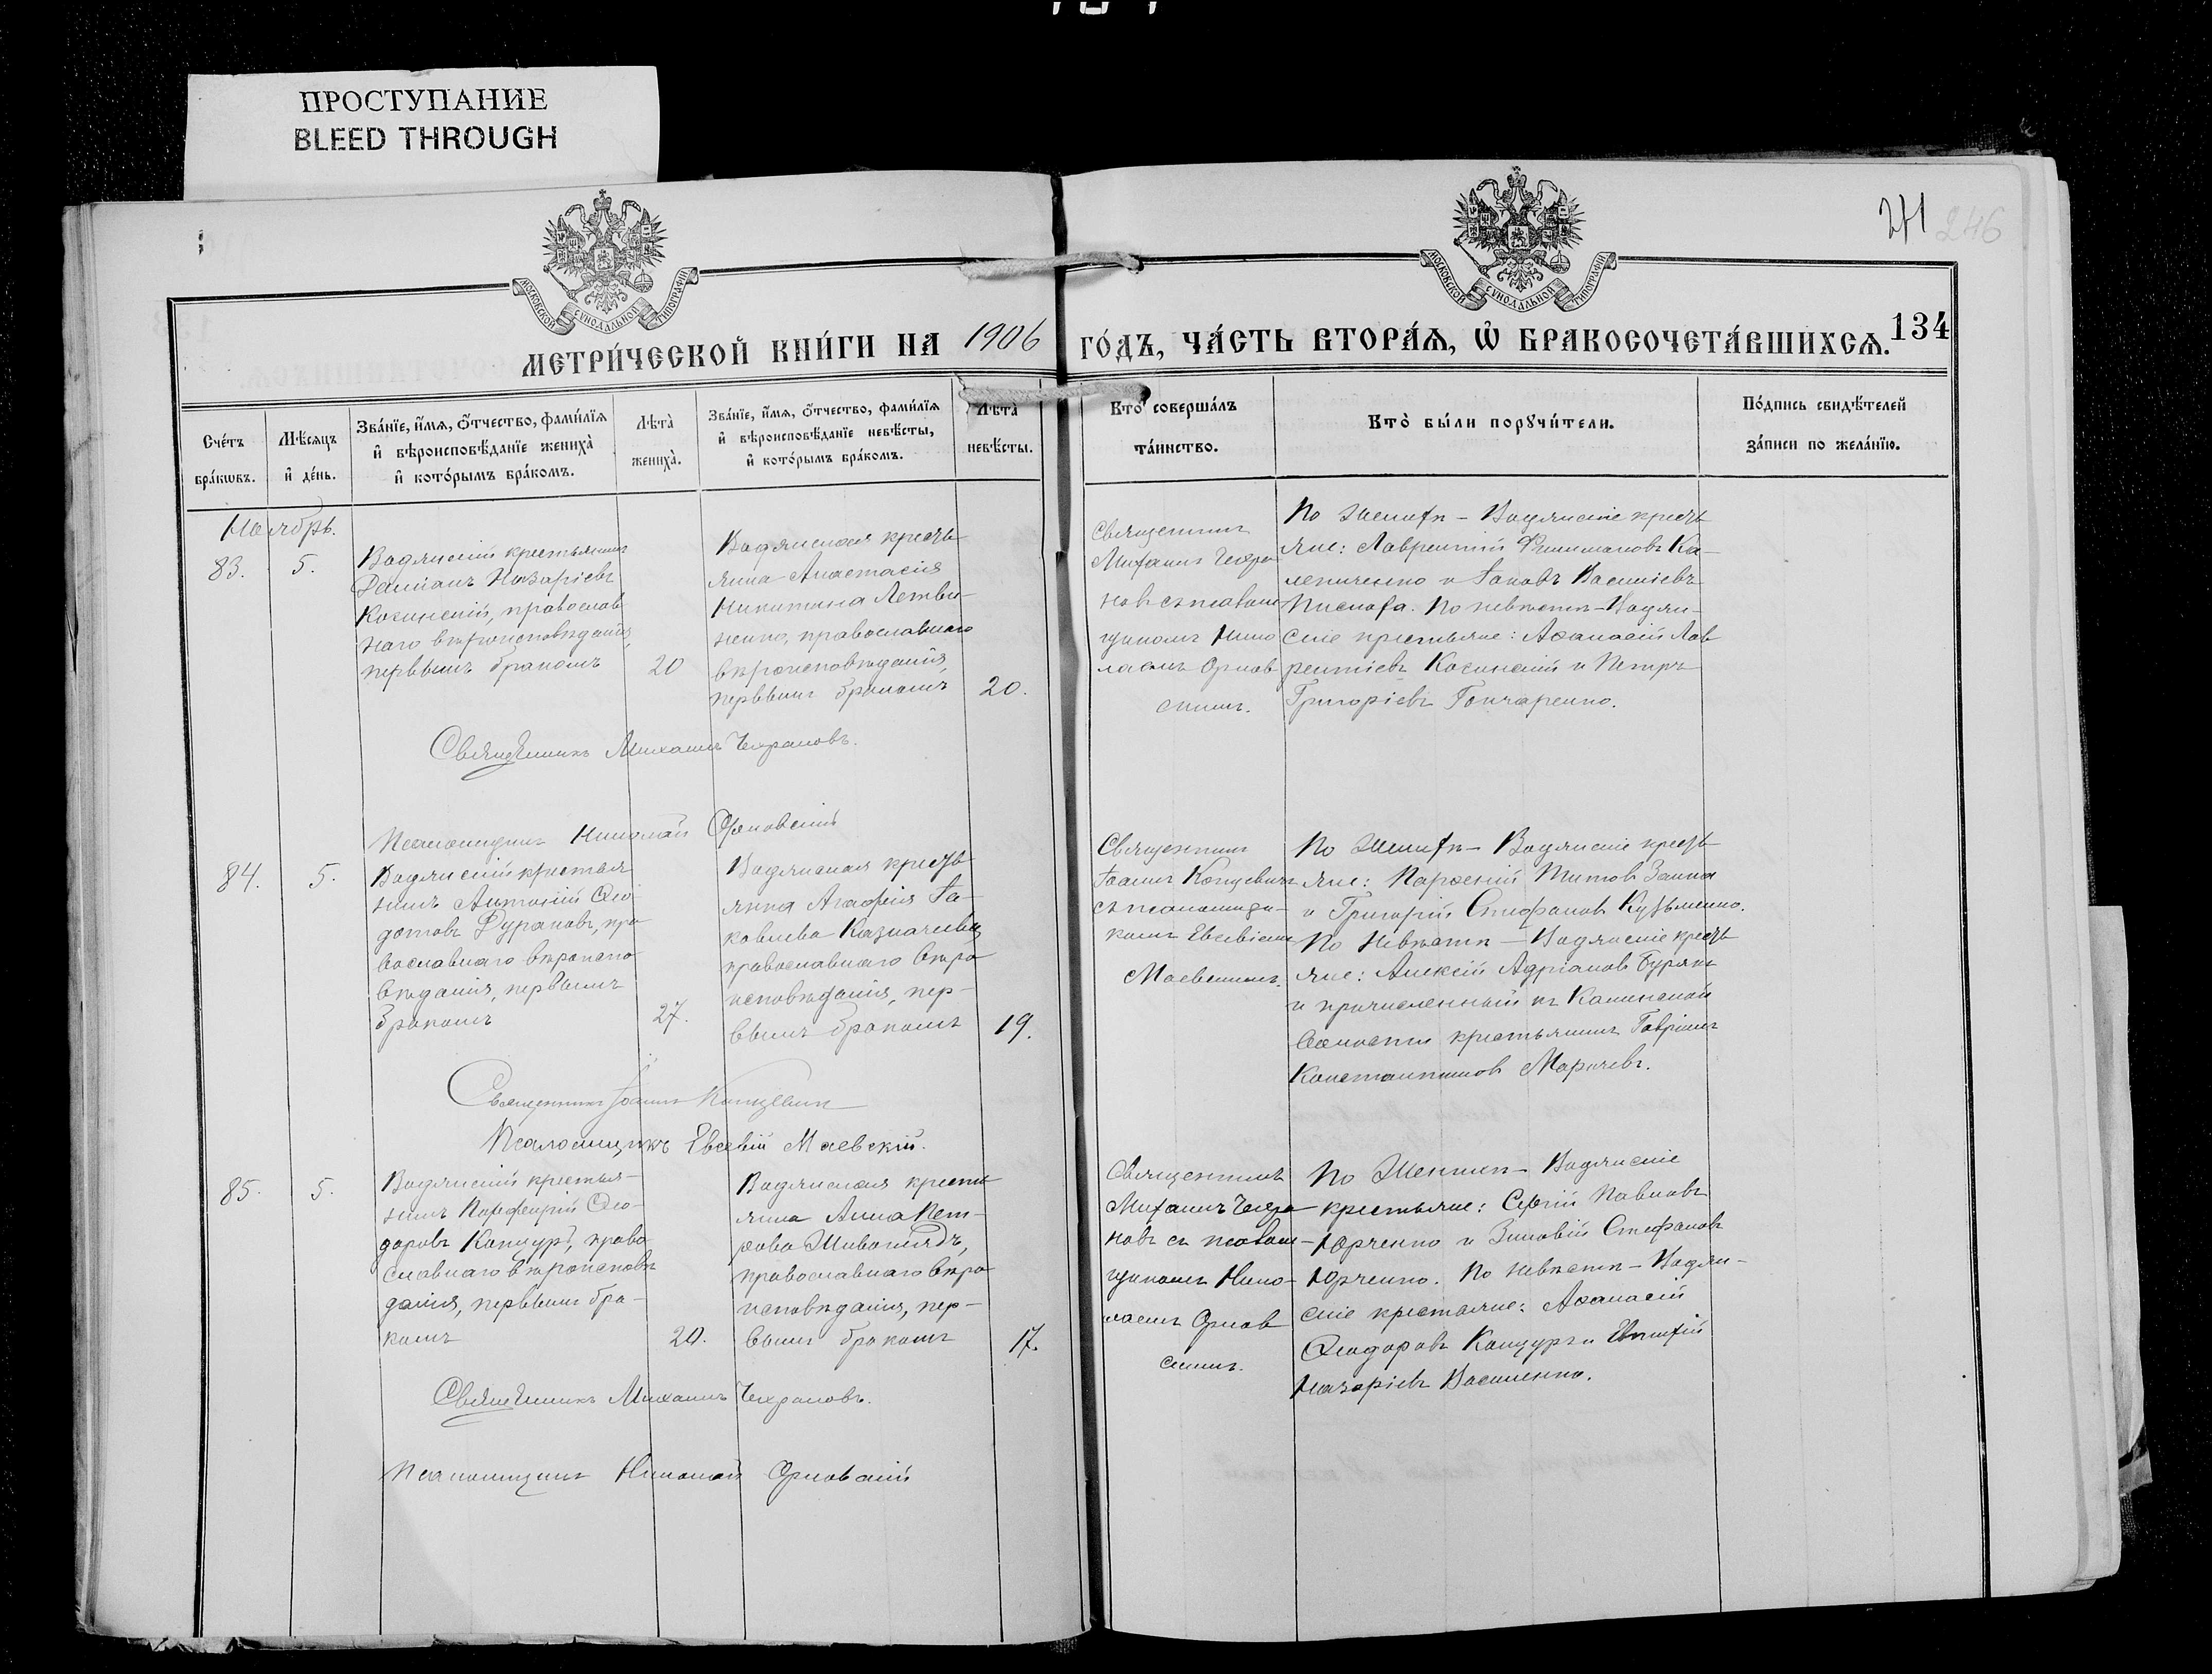 ПРОСТУПАНИЕ
BLEED THROUGH
241 246
МОСКОВСКОЙ СУНОДАЛЬНОЙ ТИПОГРАФІИ
МОСКОВСКОЙ СУНОДАЛЬНОЙ ТИПОГРАФІИ
МЕТРИ́ЧЕСКОЙ КНИ́ГИ НА 1906 ГО́ДЪ, ЧА́СТЬ ВТОРА́Я, Ѡ БРАКОСОЧЕТА́ВШИХСЯ. 134
Сче́тъ
бра́ковъ.
Мѣ́сяцъ
и де́нь.
Зва́нїе, и́мя, о́тчество, фами́лїя
и вѣроисповѣ́данїе жениха̀
и кото́рымъ бра́комъ.
Лѣта̀
жениха̀.
Зва́нїе, и́мя, о́тчество, фами́лїя
и вѣроисповѣ́данїе невѣ́сты,
и кото́рымъ бра́комъ.
Лѣта̀
невѣ́сты.
Кто̀ соверша́лъ
та́инство.
Кто̀ бы́ли порꙋчи́тели.
По́дпись свидѣ́телей
за́писи по жела́нїю.
Ноябрь.
83.
5.
Водянскій крестьянинъ
Даміанъ Назаріевъ
Косинскій, православ
наго вѣроисповѣданія,
первымъ бракомъ
20
Водянская кресть
янка Анастасія
Никитина Летви-
ненко, православнаго
вѣроисповѣданія,
первымъ бракомъ
20.
Священникъ
Михаилъ Чехра
новъ съ псалом
щикомъ Нико
лаемъ Орлов
скимъ.
По женихѣ – Водянскіе кресть
яне: Лаврентій Филимоновъ Ка-
лениченко и Іаковъ Василіевъ
Писклоfa. По невѣстѣ – Водян-
скіе крестьяне: Аѳанасій Лав
рентіевъ Косинскій и Петръ
Григоріевъ Гончаренко.
Священникъ Михаилъ Чехрановъ.
Псаломщикъ Николай Орловскій
84.
5.
Водянскій крестья
нинъ Антоній Ѳео
дотовъ Дурановъ, пра
вославнаго вѣроиспо
вѣданія, первымъ
бракомъ
27.
Водянская кресть
янка Агафія Іа-
ковлева Казначеева,
православнаго вѣро
исповѣданія, пер-
вымъ бракомъ
19.
Священникъ
Іоаннъ Концевичъ
съ псаломщи-
комъ Евсевіемъ
Маевскимъ.
По женихѣ – Водянскіе кресть
яне: Парѳеній Титовъ Заика
и Григорій Стефановъ Кузьменко.
По невѣстѣ – Водянскіе кресть
яне: Алексій Адріановъ Бурякъ
и причисленный къ Каменской
волости крестьянинъ Гавріилъ
Константиновъ Маричевъ.
Священникъ Іоаннъ Концевичъ
Псаломщикъ Евсевій Маевскій.
85.
5.
Водянскій крестья-
нинъ Порфирій Ѳео-
доровъ Канцуръ, право
славнаго вѣроисповѣ
данія, первымъ бра-
комъ
20.
Водянская кресть
янка Анна Пет-
рова Шивоглядъ,
православнаго вѣро
исповѣданія, пер-
вымъ бракомъ
17.
Священникъ
Михаилъ Чехра
новъ съ псалом-
щикомъ Нико-
лаемъ Орлов
скимъ.
По женихѣ – Водянскіе
крестьяне: Сергій Павловъ
Юрченко и Зиновій Стефановъ
Юрченко. По невѣстѣ – Водян-
скіе крестьяне: Аѳанасій
Ѳеодоровъ Канцуръ и Евтихій
Назаріевъ Василенко.
Священникъ Михаилъ Чехрановъ.
Псаломщикъ Николай Орловскій